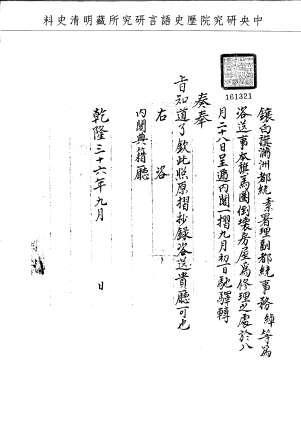 中央研究院歷史語言研究所藏明清史料
161321
鑲白旗滿洲都統 素署理副都統事務 綽等為
咨送事本旗馬圈倒壞房屋為修理之處於八
月二十八日呈遞內閣一摺九月初一日馳驛轉
奏奉
旨知道了欽此照原摺抄錄咨送貴廳可也
右 咨
內閣典籍廳
乾隆三十六年九月 日